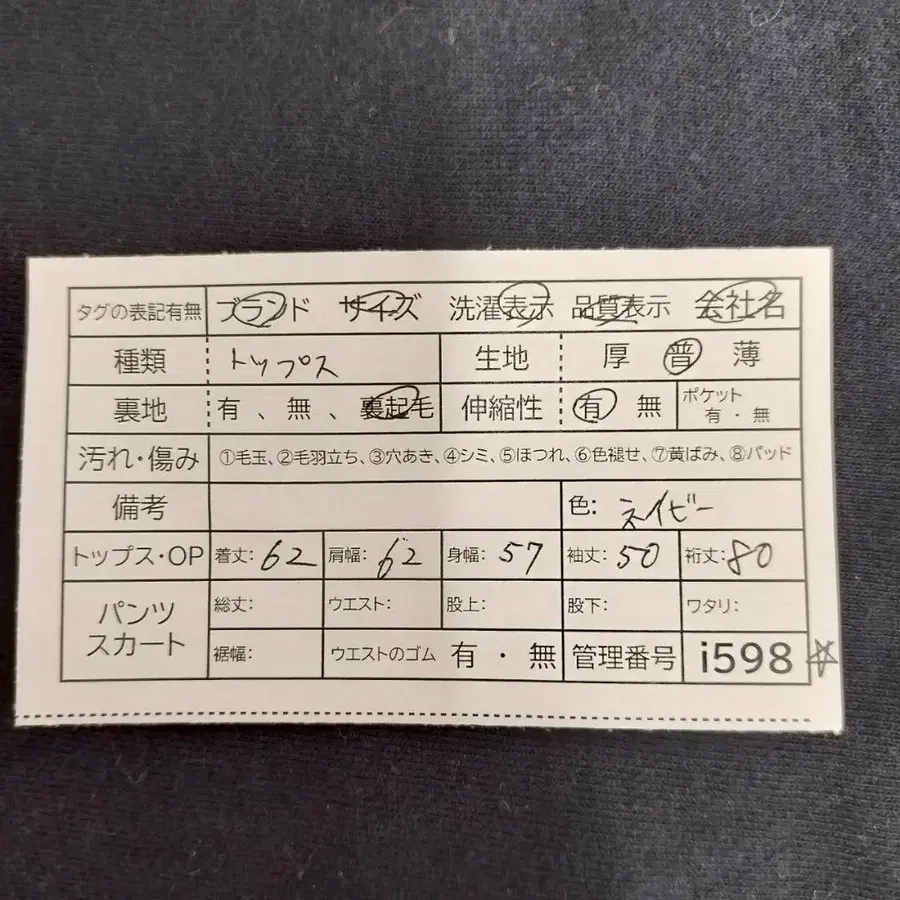 タグの表記有無 ブランド サイズ 洗濯表示 品質表示 会社名
種類 トップス 生地 厚 普 薄
裏地 有、無、裏起毛 伸縮性 有 無 ポケット 有・無
汚れ・傷み ①毛玉、②毛羽立ち、③穴あき、④シミ、⑤ほつれ、⑥色褪せ、⑦黄ばみ、⑧パッド
備考 色: ネイビー
トップス・OP 着丈: 62 肩幅: 62 身幅: 57 袖丈: 50 裄丈: 80
パンツ スカート 総丈: ウエスト: 股上: 股下: ワタリ:
裾幅: ウエストのゴム 有・無 管理番号 i598